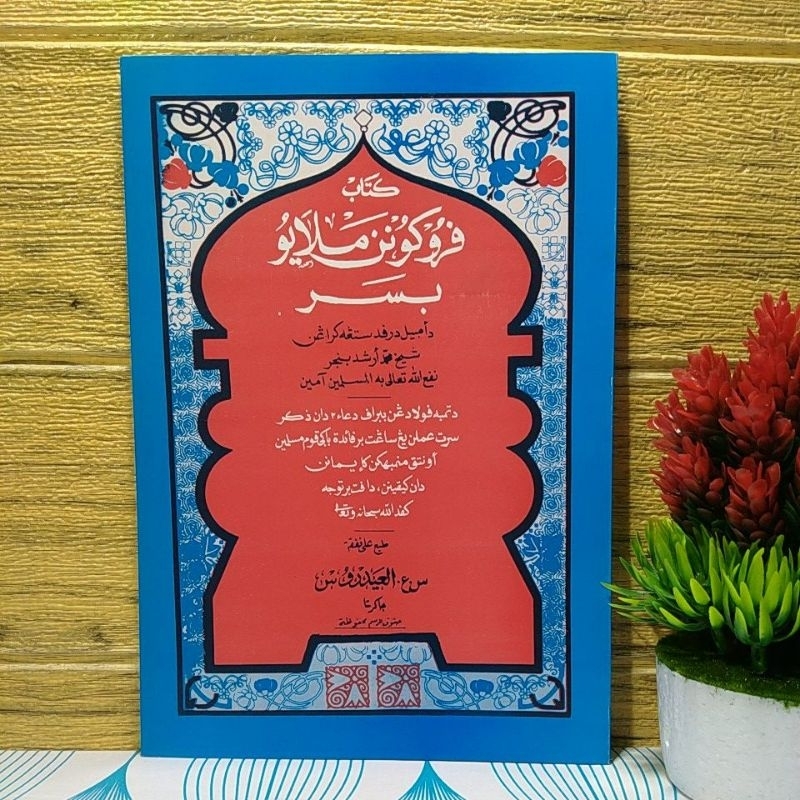 كتاب
فروكونن ملايو
بسر
دأمبيل درفد ستڠه كراڠن
شيخ محمد أرشد بنجر
نفع الله تعالى به المسلمين آمين
دتمبه فولا دڠن ببراف دعاء٢ دان ذكر
سرت عملن يڠ ساڠت برفائدة باكي قوم مسلمين
أونتق منمبهكن كإيمانن
دان كيقينن، دافت برتوجه
كفد الله سبحانه وتعالى
طبع على نفقة
س.ع. العيدروس
جاكرتا